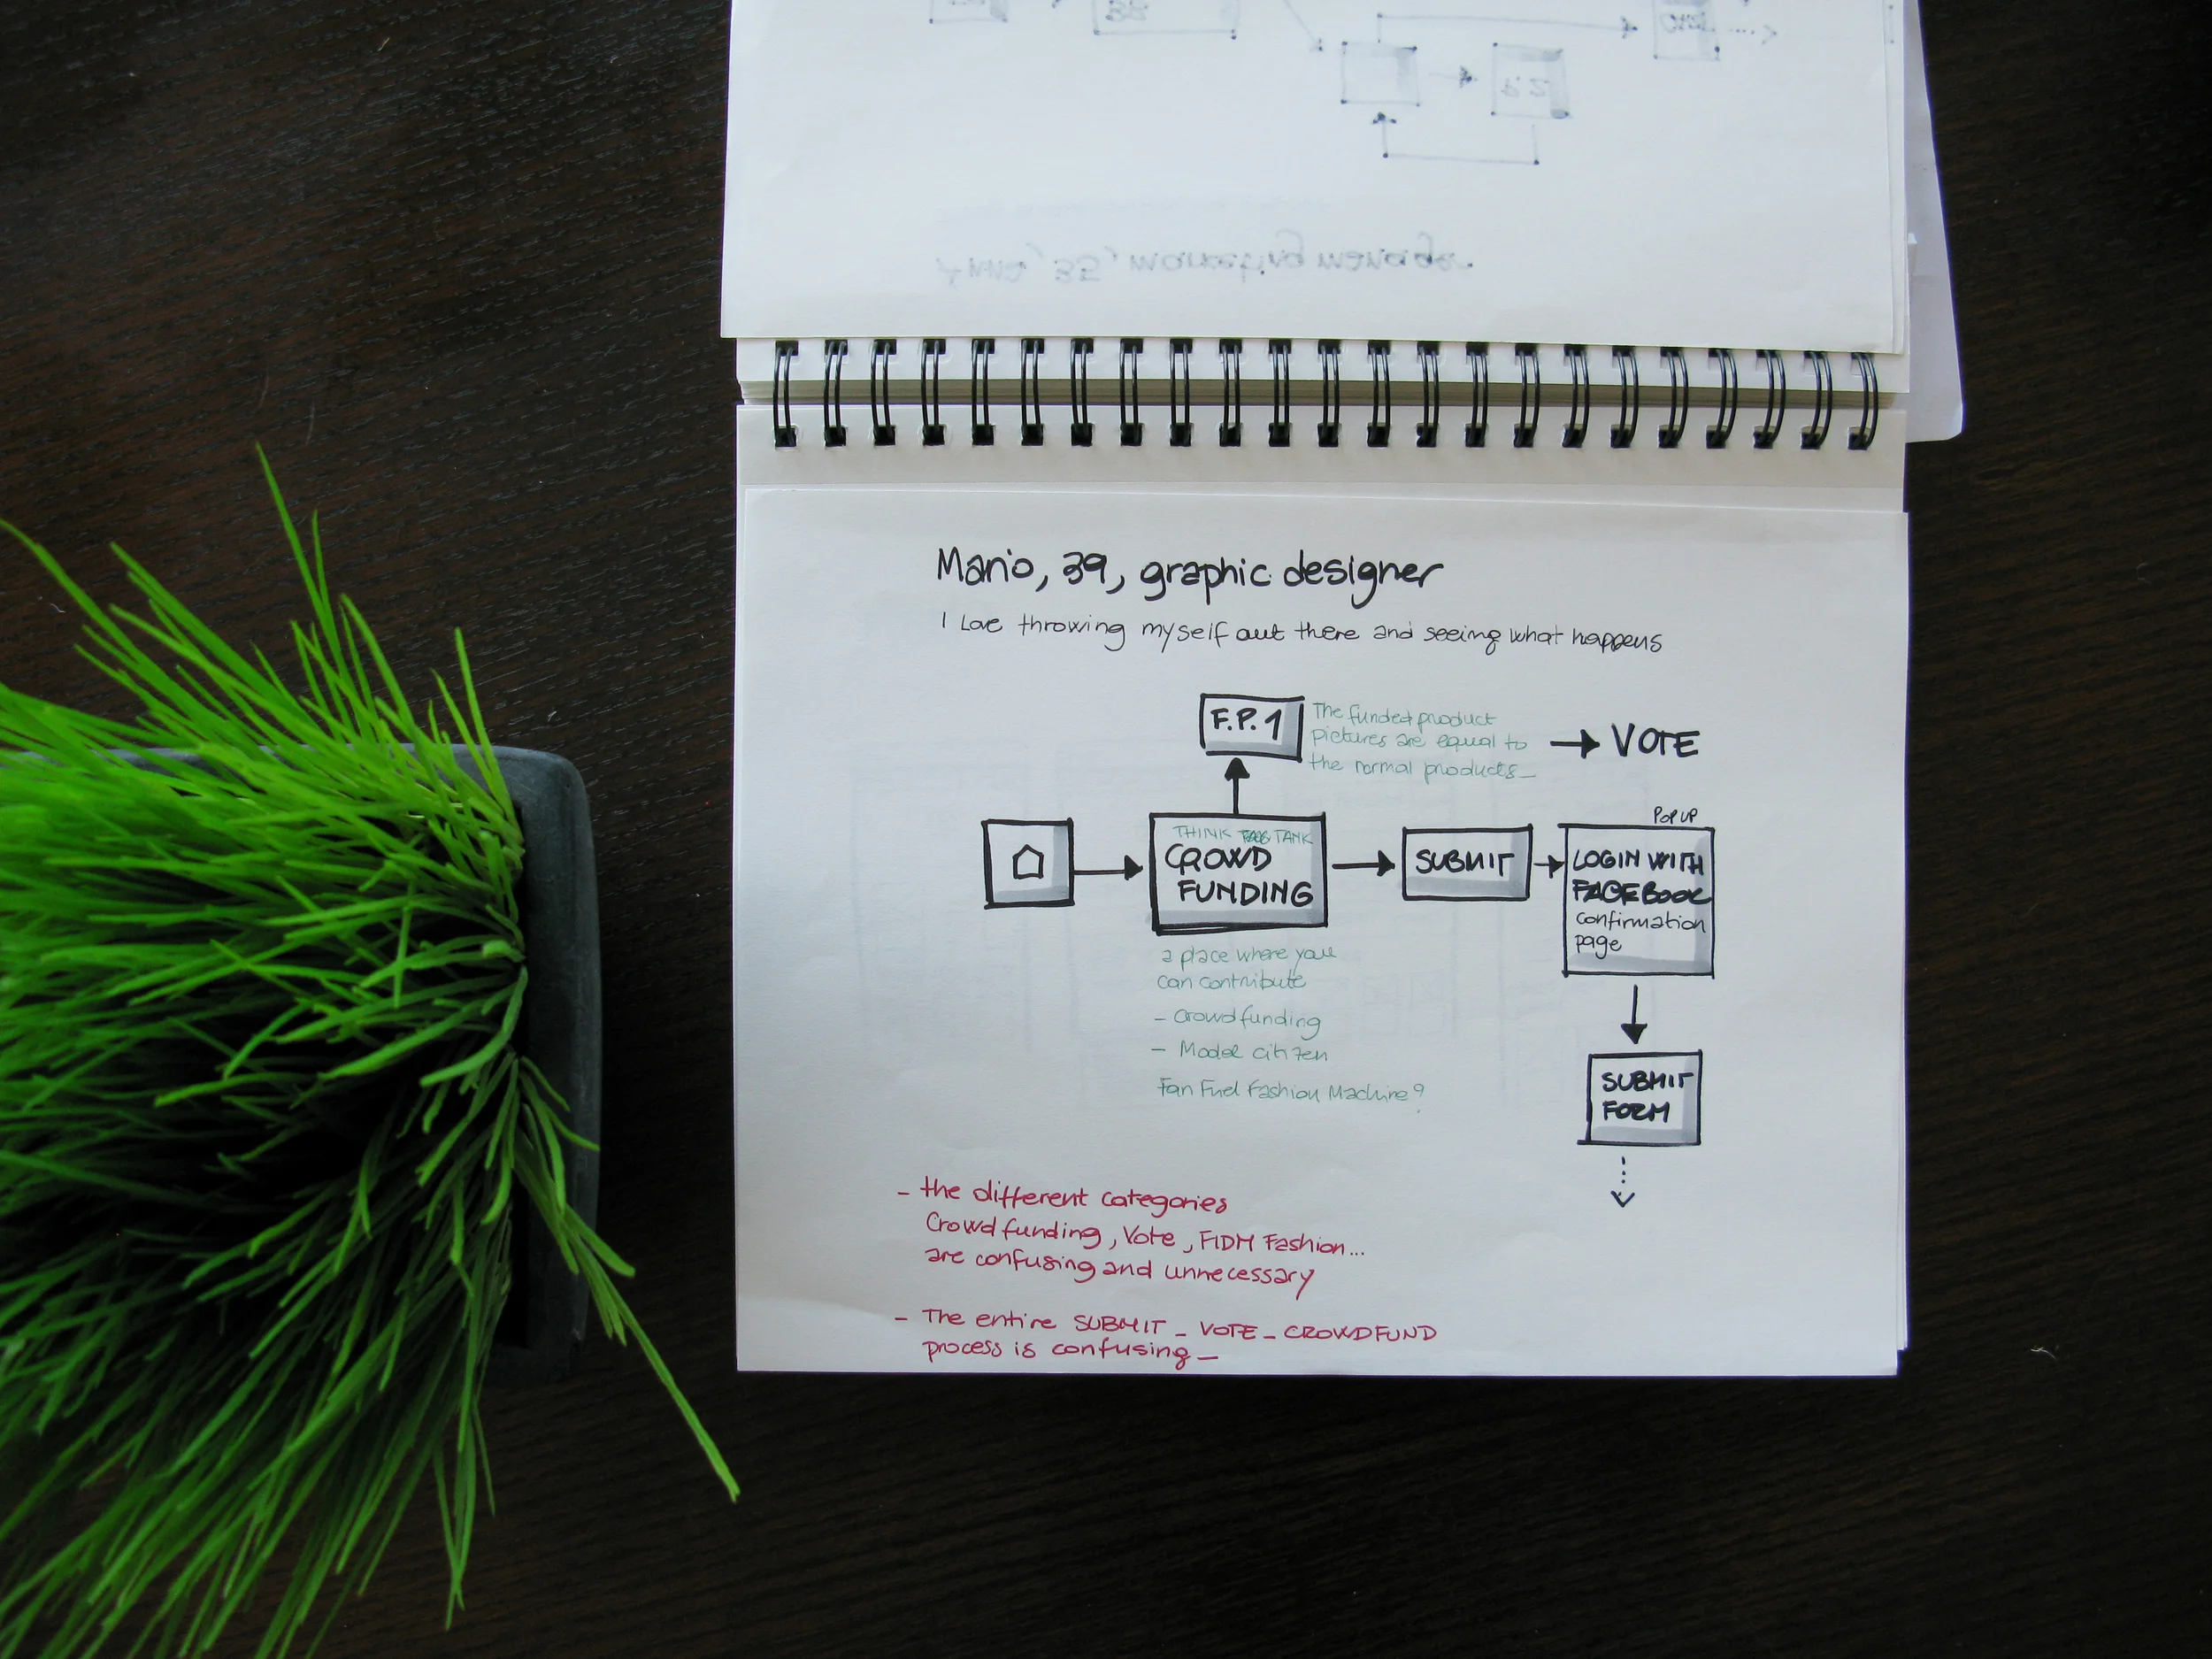 Mario, 39, graphic designer
I Love throwing myself out there and seeing what happens
F.P.1
The funded product
pictures are equal to
the normal products_
VOTE
POP UP
THINK TANK
CROWD
FUNDING
SUBMIT
LOGIN WITH
FACEBOOK
confirmation
page
a place where you
can contribute
- Crowdfunding
- Model citizen
Fan Fuel Fashion Machine?
SUBMIT
FORM
- the different categories
Crowdfunding, Vote, FIDM Fashion...
are confusing and unnecessary
- The entire SUBMIT_VOTE_CROWDFUND
process is confusing_